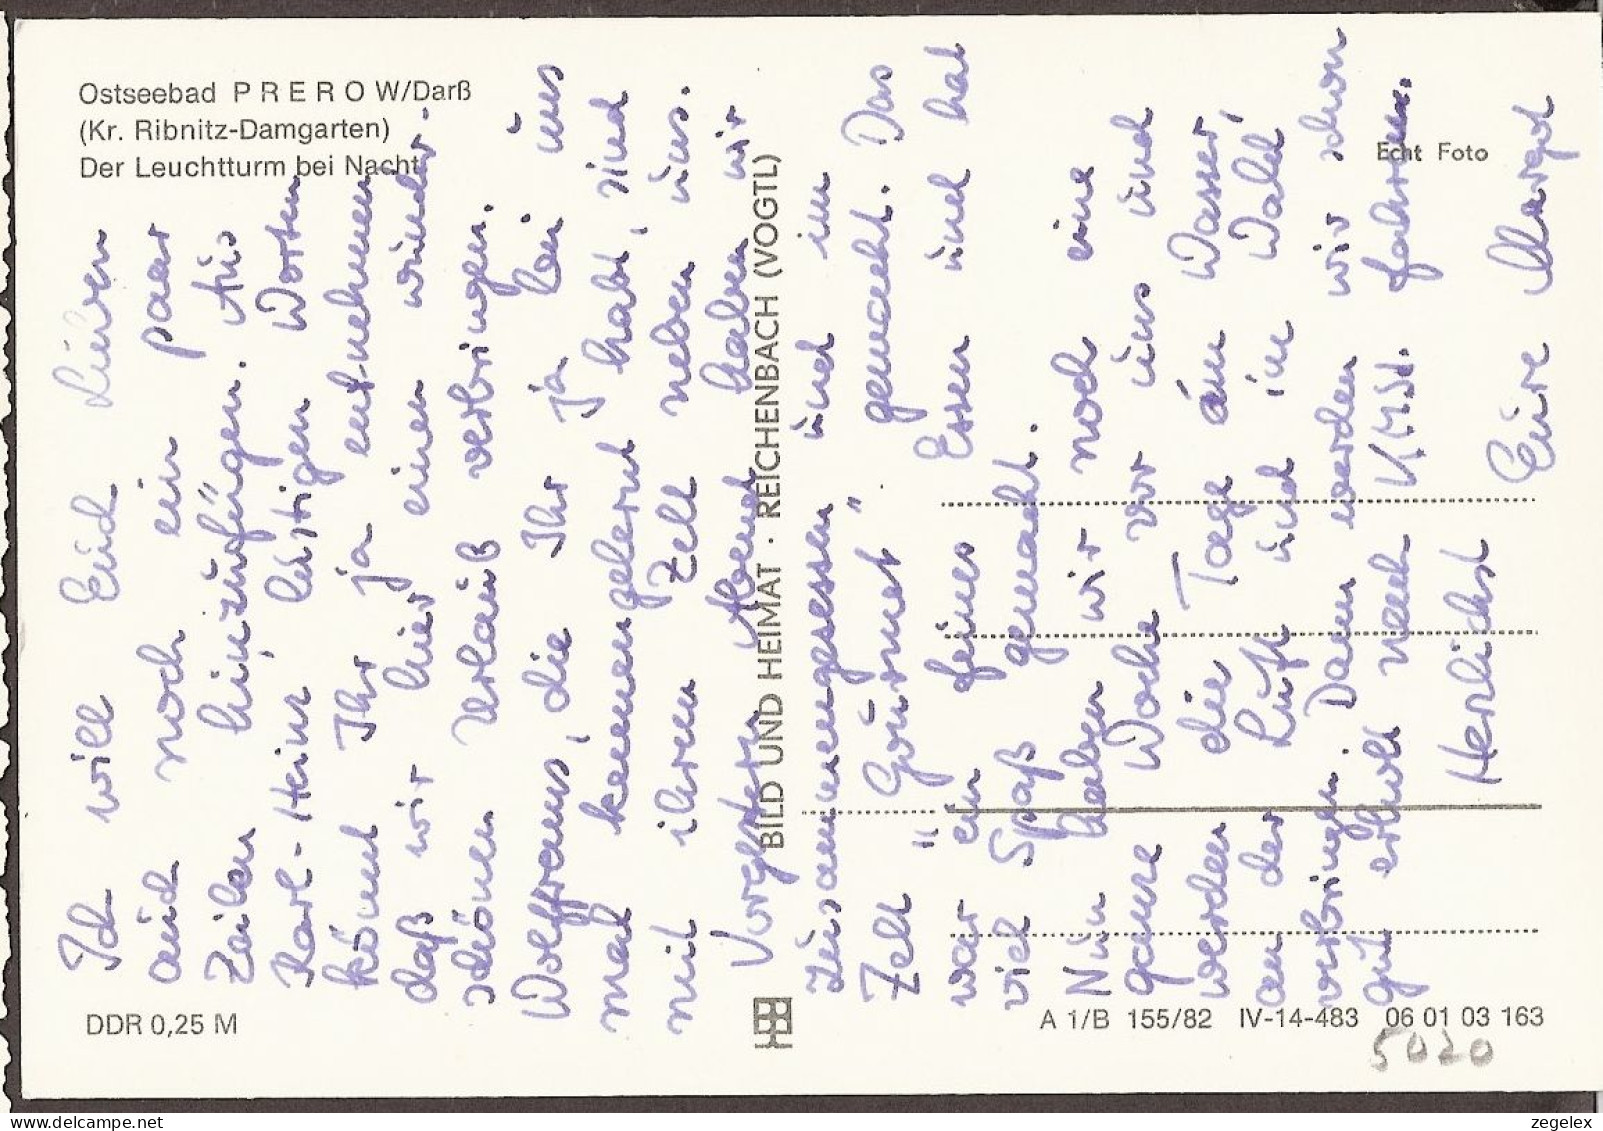 Ostseebad PREROW/Darß
(Kr. Ribnitz-Damgarten)
Der Leuchtturm bei Nacht
Echt Foto
BILD UND HEIMAT · REICHENBACH (VOGTL)
Ich will Euch Lieben
auch noch ein paar
Zeilen hinzufügen. Aus
Karl-Heinz lustigen Worten
könnt Ihr ja entnehmen
daß wir hier einen wunder-
schönen Urlaub verbringen.
Wolfframs, die Ihr ja bei uns
mal kennengelernt habt, sind
mit ihrem Zelt neben uns.
Vorgestern Abend haben wir
zusammengesessen und im
Zelt "Gourmet" gemacht. Das
war ein feines Essen und hat
viel Spaß gemacht.
Nun haben wir noch eine
ganze Woche vor uns und
werden die Tage am Wasser,
an der Luft und im Wald
verbringen. Dann werden wir schon
gut erholt nach K.M.St. fahren.
Herzlichst Eure Margot
DDR 0,25 M
A 1/B 155/82 IV-14-483 06 01 03 163
5020
delcampe.net
zegelex